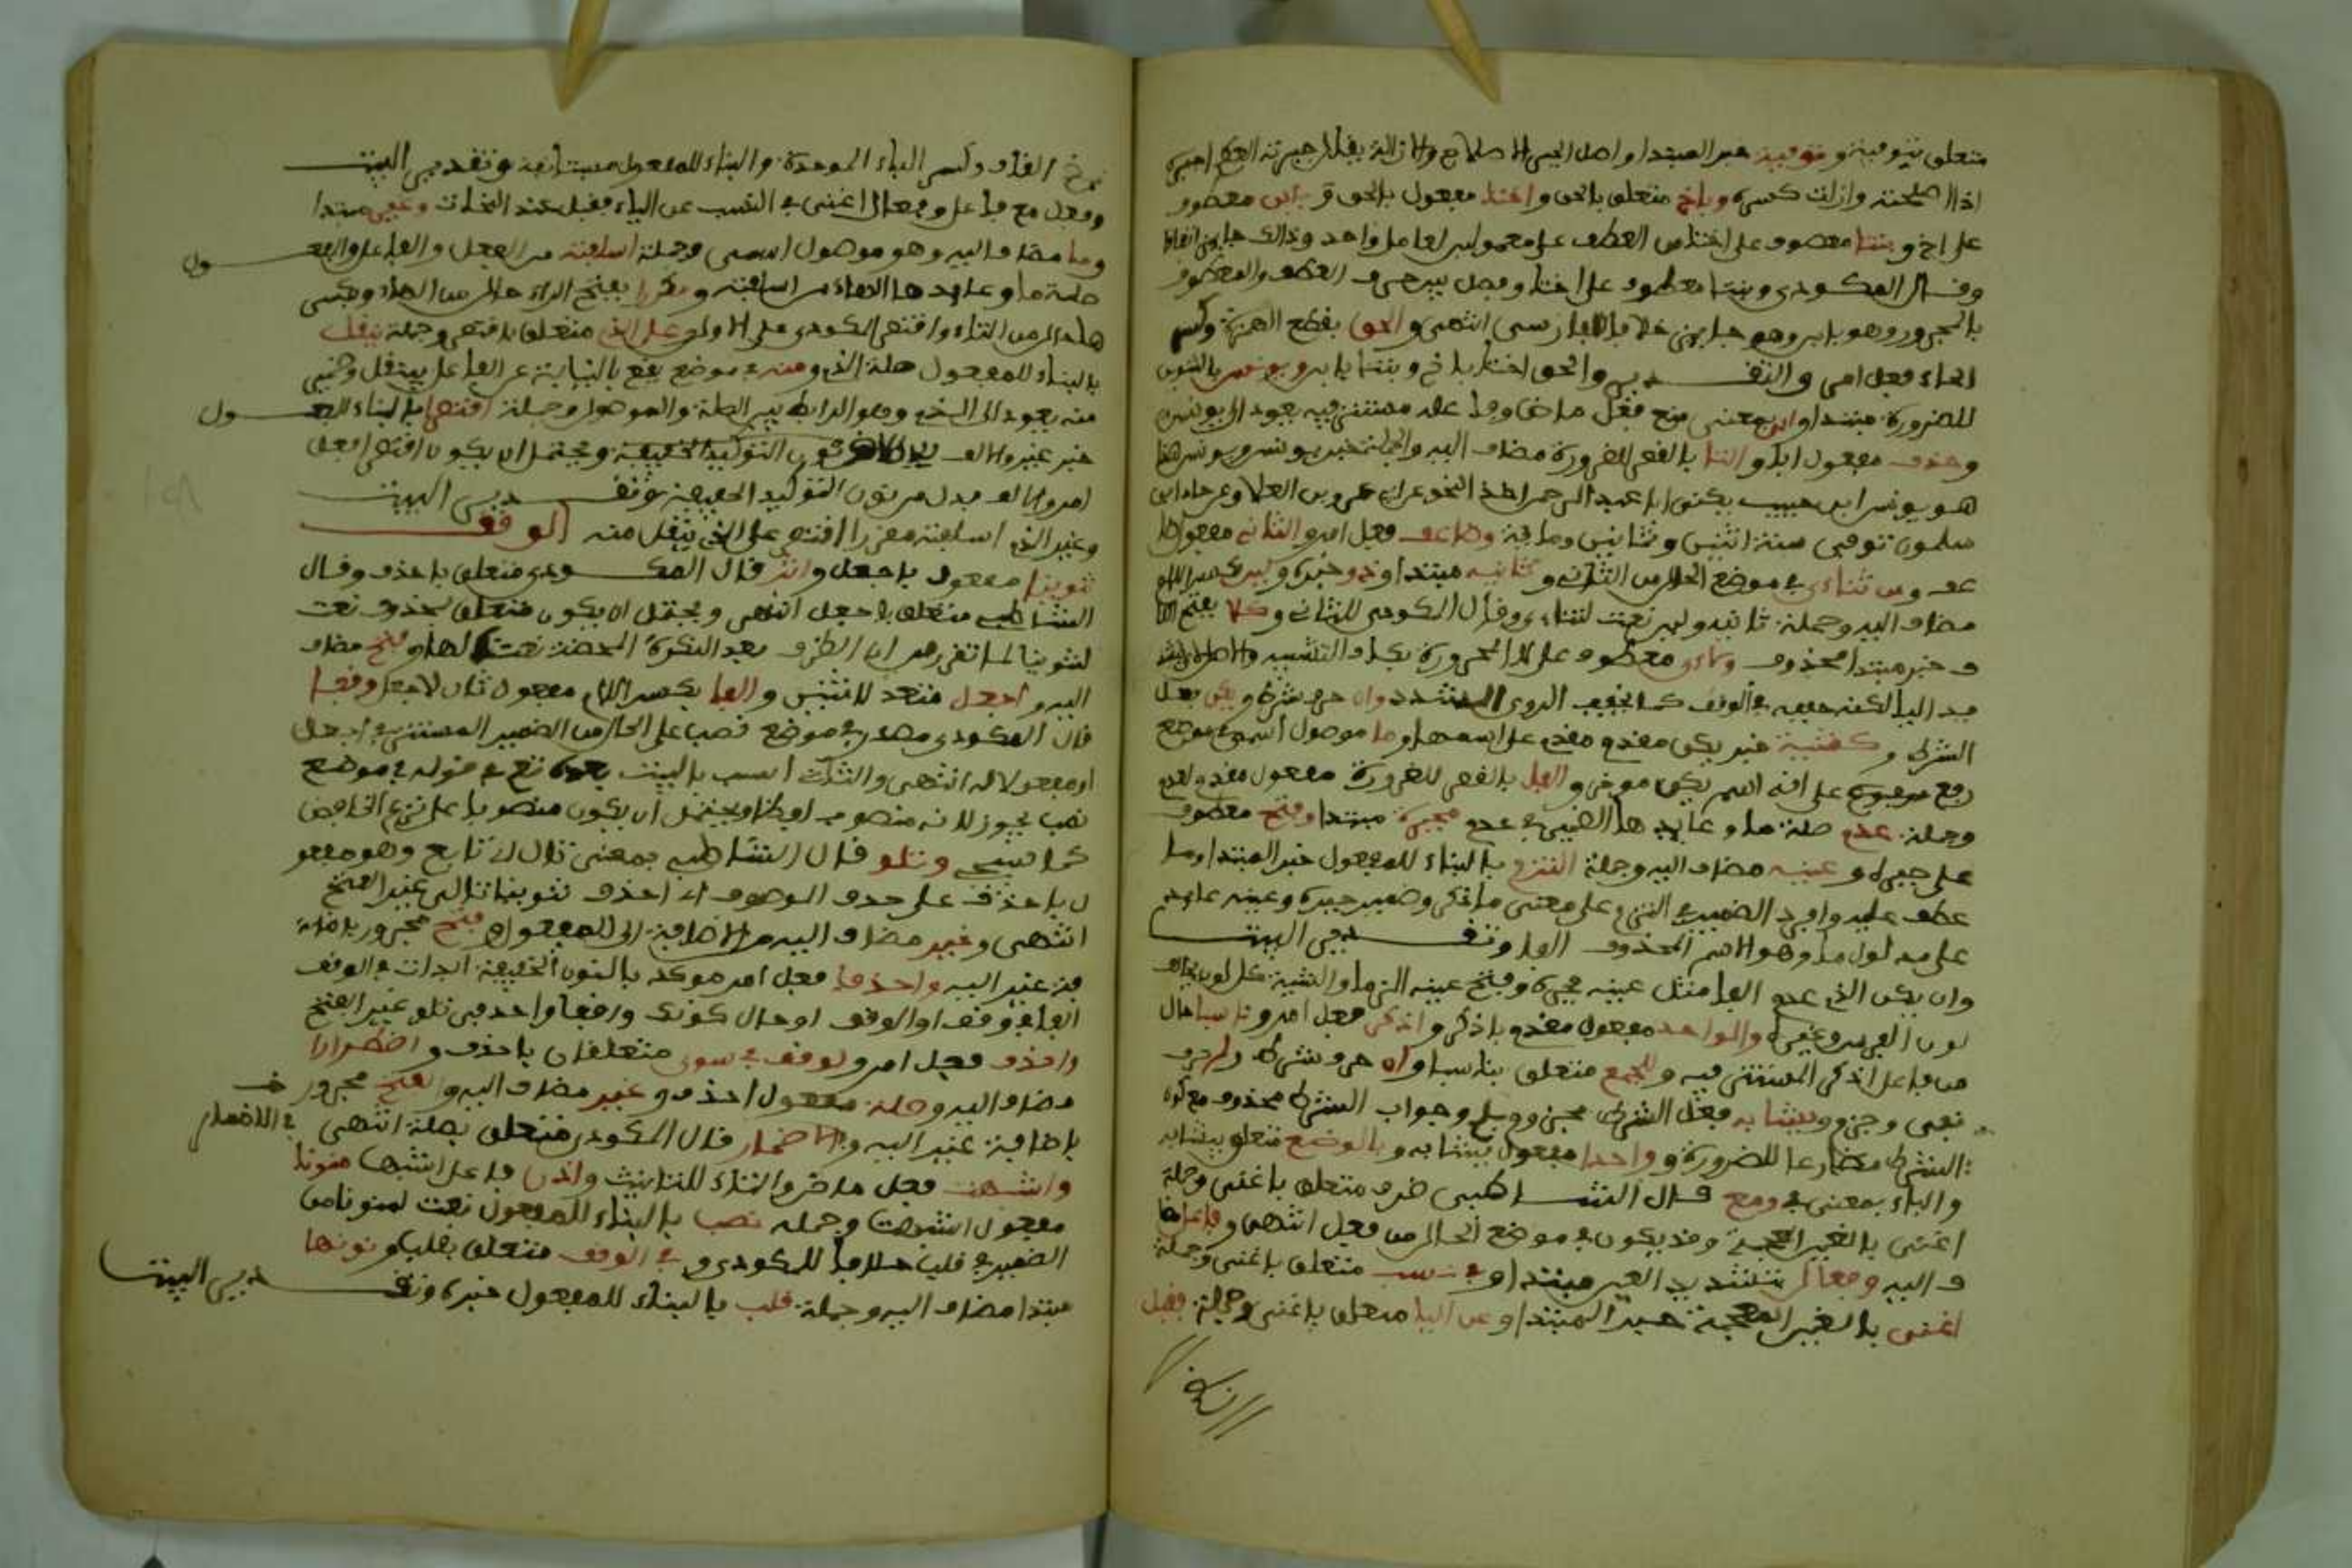 متعلق بتوفية وتوفية خبر المبتدا واصل الجبر الاصلاح والازالة يقال جبرته العظم اجبره
اذا اصلحته وازلت كسره وباخ متعلق بالحق واختا مفعول بالحق وبابن معطوف
على اخ وبنتا معطوف على اختا من العطف على معمولين لعامل واحد وذالك جايز اتفاقا
وقال المكودي وبنتا معطوف على اختا وفصل بين حرف العطف والمعطوف
بالمجرور وهو بابن وهو جايز خلافا للفارسي انتهى والحق بقطع الهمزة وكسر
الحاء فعل امر والتقدير والحق اختا باخ وبنتا بابن ويونس بالتنوين
للضرورة مبتدا وابى بمعنى منع فعل ماض وفاعله مستتر فيه يعود الى يونس
وحذف مفعول ابى والتا بالقصر للضرورة مضاف اليه والجملة خبر يونس ويونس هذا
هو يونس ابن حبيب يكنى ابا عبد الرحمن اخذ النحو عن ابي عمرو بن العلا وعن حماد ابن
سلمة توفي سنة اثنتين وثمانين وماية وضاعف فعل امر والثاني مفعول ضا
عف ومن ثنائي في موضع الحال من الثاني وثانيه مبتدا وذو خبره ولين بكسر اللام
مضاف اليه وجملة ثانيه ذو لين نعت لثنائي وقال المكودي للثاني وكلا بفتح الكا
ف خبر مبتدا محذوف ولائي معطوف على لا المجرورة بكاف التشبيه والاصل تشد
يد اليا لكنه خففه في الوقف كما يخفف الروي المشدد وان حرف شرط ويكن فعل
الشرط وكشية خبر يكن مقدم على اسمها وما موصول اسمي في موضع
رفع على انه اسم يكن موخر والفا بالقصر للضرورة مفعول مقدم لعدم
وجملة عدم صلة ما وعايدها الضمير في عدم فجبره مبتدا وفتح معطوف
على جبره وعينه مضاف اليه وجملة التزم بالبناء للمفعول خبر المبتدا وما
عطف عليه وافرد الضمير في التزم على معنى ما ذكر وضمير جبره وعينه عايد
على مدلول ما وهو الاسم المحذوف الفا وتقدير البيت
وان يكن الذي عدم الفا مثل عينه فجبره وفتح عينه التزما والشية كل لون يخالف
لون الفرس وغيره والواحد مفعول مقدم باذكر واذكر فعل امر وناسبا حال
من فاعل اذكر المستتر فيه وللجمع متعلق بناسبا وان حرف شرط ولم حرف
نفي وجزم ويشابه فعل الشرط مجزوم بلم وجواب الشرط محذوف مع كون
الشرط مضارعا للضرورة وواحدا مفعول يشابه وبالوضع متعلق بيشابه
والباء بمعنى في ومع قال الشاطبي ظرف متعلق باغنى وجملة
اغنى بالغين المعجمة وقد يكون في موضع الحال من فعل انتهى وفاعل مضا
ف اليه وفعال بتشديد العين مبتدا وفي نسب متعلق باغنى وجملة
اغنى بالغين المعجمة خبر المبتدا وعن اليا متعلق باغنى وجملة فقبل
القاف وكسر الباء الموحدة والبناء للمفعول مستانفة وتقدير البيت
وفعل مع فاعل وفعال اغنى في النسب عن الياء فقبل عند النحات وغير مبتدا
وما مضاف اليه وهو موصول اسمي وجملة اسلفته من الفعل والفاعل والمفعول
صلة ما وعايدها الهاء من اسلفته ومقررا بفتح الراء حال من الهاء وبكسر
ها حال من التاء واقتصر المكودي على الاول وعلى الذي متعلق باقتصر وجملة ينقل
بالبناء للمفعول صلة الذي ومنه في موضع رفع بالنيابة عن الفاعل بينقل وضمير
منه يعود الى الذي وهو الرابط بين الصلة والموصول وجملة اقتصرا بالبناء للمفعول
خبر غير والالف نون التوكيد الخفيفة ويحتمل ان يكون اقتصر فعل
امر والالف بدل من نون التوكيد الخفيفة وتقدير البيت
وغير الذي اسلفته مقررا اقتصر على الذي ينقل منه الوقف
تنوينا مفعول باجعل واثر قال المكودي متعلق باحذف وقال
الشاطبي متعلق باجعل انتهى ويحتمل ان يكون متعلق بمحذوف نعت
لتنوينا لما تقرر من ان الظرف بعد النكرة المحضة نعت لها وفتح مضاف
اليه واجعل متعد لاثنين والفا بكسر اللام مفعول ثان لاجعل ووقفا
قال المكودي مصدر في موضع نصب على الحال من الضمير المستتر في اجعل
او مفعول له انتهى والثالث انسب بالبيت
نصب يجوز لانه منصوب لفظا ويحتمل ان يكون منصوبا على نزع الخافض
كما سبق وتلو قال الشاطبي بمعنى تال اي تابع وهو مفعو
ل باحذف على حذف الموصوف اي احذف تنوينا تالي غير الفتح
انتهى وغير مضاف اليه من الاضافة الى المفعول وفتح مجرور باضا
فة غير اليه واحذفا فعل امر موكد بالنون الخفيفة ابدلت في الوقف
واحذف فعل امر ولوقف وفي سوى متعلقان باحذف واضطرارا
مضاف اليه وصلة مفعول احذف وغير مضاف اليه والفتح مجرور
باضافة غير اليه وفي الاضمار قال المكودي متعلق بصلة انتهى
واشبهت فعل ماض والتاء للتانيث واذن فاعل اشبهت منونا
مفعول اشبهت وجملة نصب بالبناء للمفعول نعت لمنونا من
الضمير في قلب خلافا للمكودي وفي الوقف متعلق بقلب ونونها
مبتدا مضاف اليه وجملة قلب بالبناء للمفعول خبره وتقدير البيت